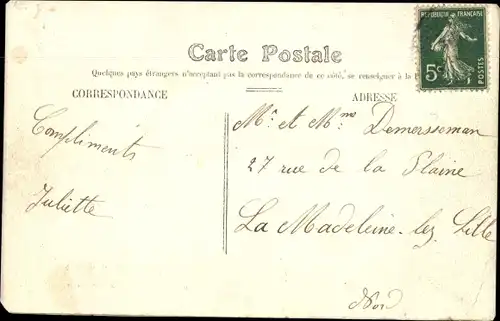 RÉPUBLIQUE FRANÇAISE
5c POSTES
Carte Postale
Quelques pays étrangers n'acceptant pas la correspondance de ce côté, se renseigner à la
CORRESPONDANCE
ADRESSE
Compliments
Juliette
Mr et Mme Demersseman
27 rue de la Plaine
La Madeleine-lez-Lille
Nord